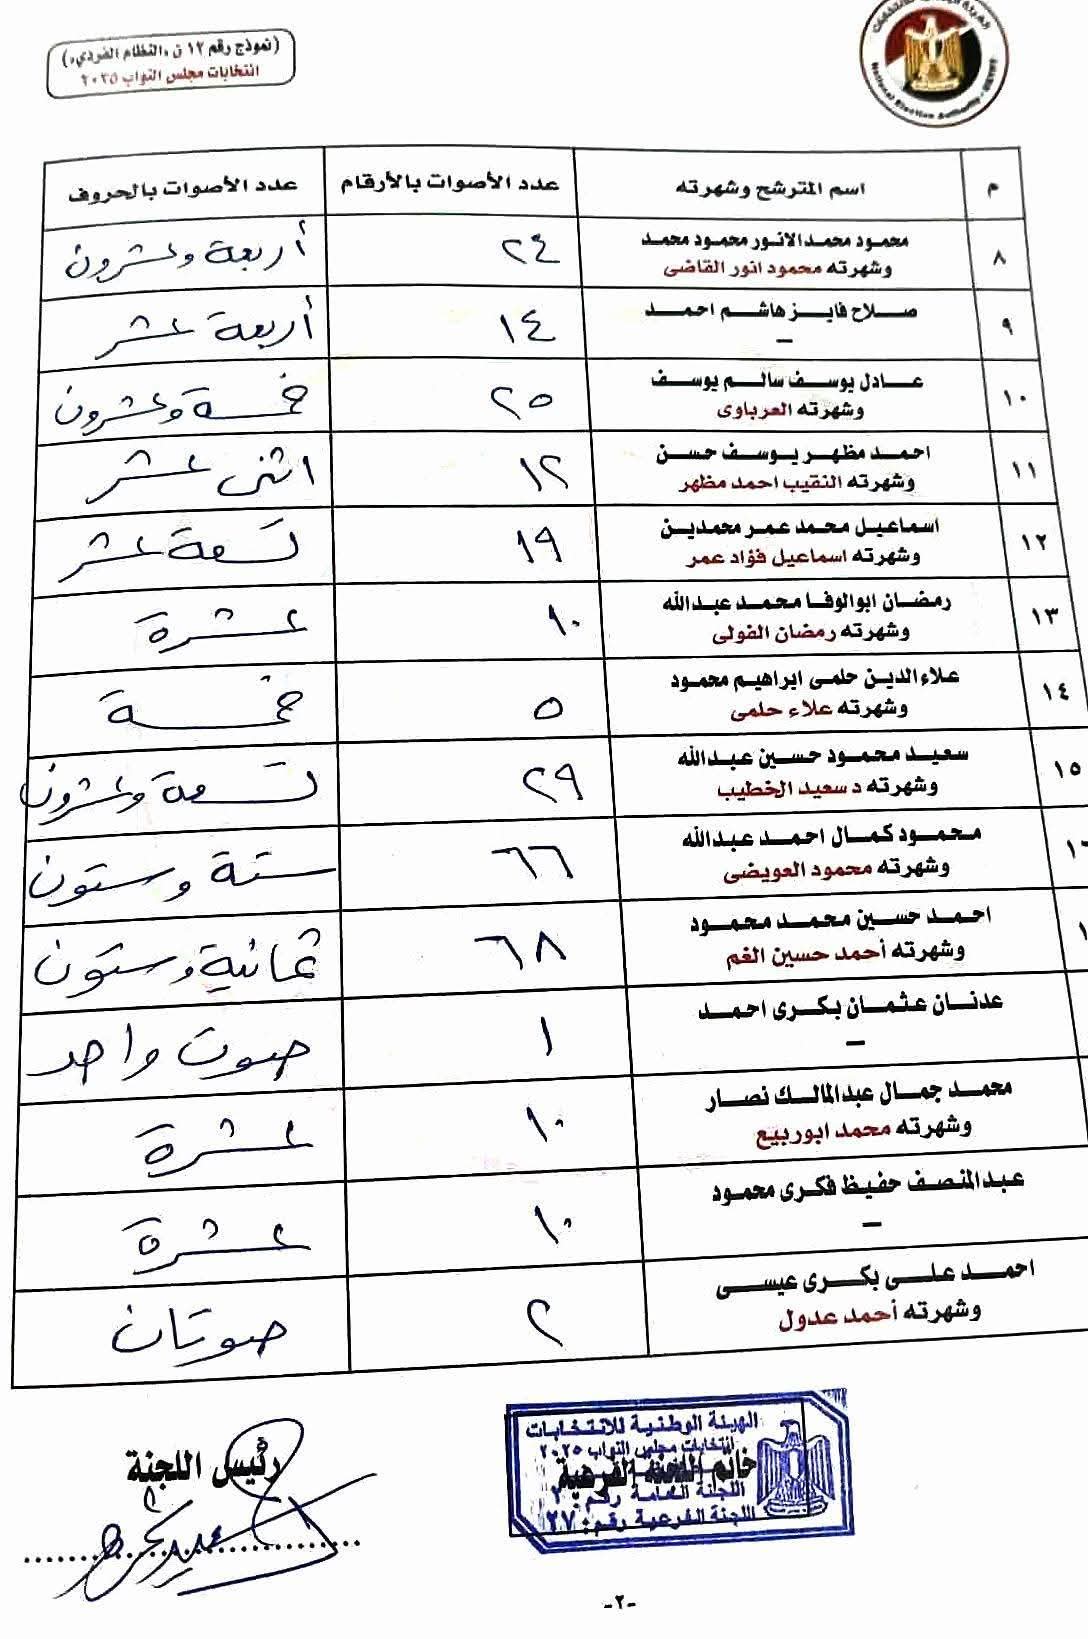 (نموذج رقم ١٢ ن «النظام الفردي»)
انتخابات مجلس النواب ٢٠٢٥
National Election Authority - EGYPT
م اسم المترشح وشهرته عدد الأصوات بالأرقام عدد الأصوات بالحروف
٨ محمود محمد الانور محمود محمد ٢٤ أربعة وعشرون
وشهرته محمود انور القاضى
٩ صلاح فايز هاشم احمد ١٤ أربعة عشر
–
١٠ عادل يوسف سالم يوسف ٢٥ خمسة وعشرون
وشهرته العرباوى
١١ احمد مظهر يوسف حسن ١٢ اثنى عشر
وشهرته النقيب احمد مظهر
١٢ اسماعيل محمد عمر محمدين ١٩ تسعة عشر
وشهرته اسماعيل فؤاد عمر
١٣ رمضان ابوالوفا محمد عبدالله ١٠ عشرة
وشهرته رمضان الفولى
١٤ علاءالدين حلمى ابراهيم محمود ٥ خمسة
وشهرته علاء حلمى
١٥ سعيد محمود حسين عبدالله ٢٩ تسعة وعشرون
وشهرته د سعيد الخطيب
محمود كمال احمد عبدالله ٦٦ ستة وستون
وشهرته محمود العويضى
احمد حسين محمد محمود ٦٨ ثمانية وستون
وشهرته أحمد حسين الغم
عدنان عثمان بكرى احمد ١ صوت واحد
–
محمد جمال عبدالمالك نصار ١٠ عشرة
وشهرته محمد ابوربيع
عبدالمنصف حفيظ فكرى محمود ١٠ عشرة
–
احمد على بكرى عيسى ٢ صوتان
وشهرته أحمد عدول
الهيئة الوطنية للانتخابات
انتخابات مجلس النواب ٢٠٢٥
خاتم اللجنة الفرعية
اللجنة العامة رقم: ٢
اللجنة الفرعية رقم: ٢٧
رئيس اللجنة
-٢-